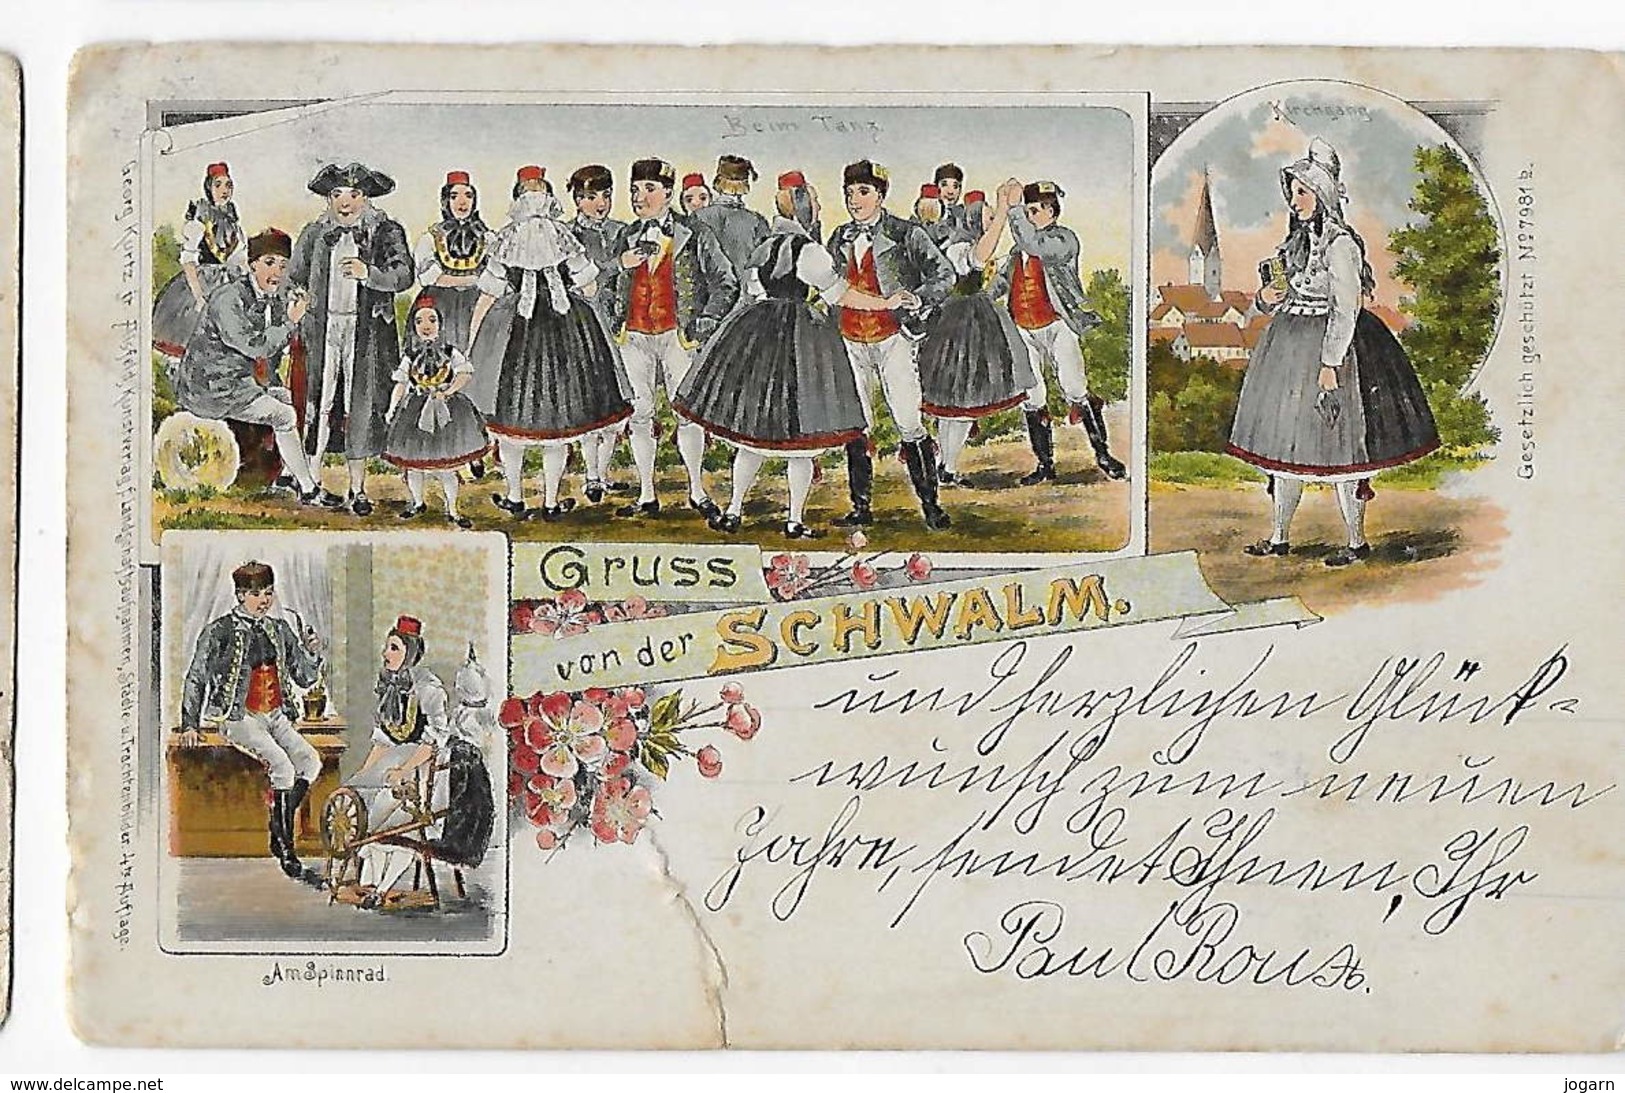 Beim Tanz.
Kirchgang.
Gesetzlich geschützt No 7981 b.
Gruss
von der SCHWALM.
und herzlichen Glück-
wunsch zum neuen
Jahre, sendet Ihnen, Ihr
Paul
Am Spinnrad.
Georg Kurtz Kunstverlag f. Landschaftsaufnahmen, Städte u. Trachtenbilder 4te Auflage.
www.delcampe.net
jogarn